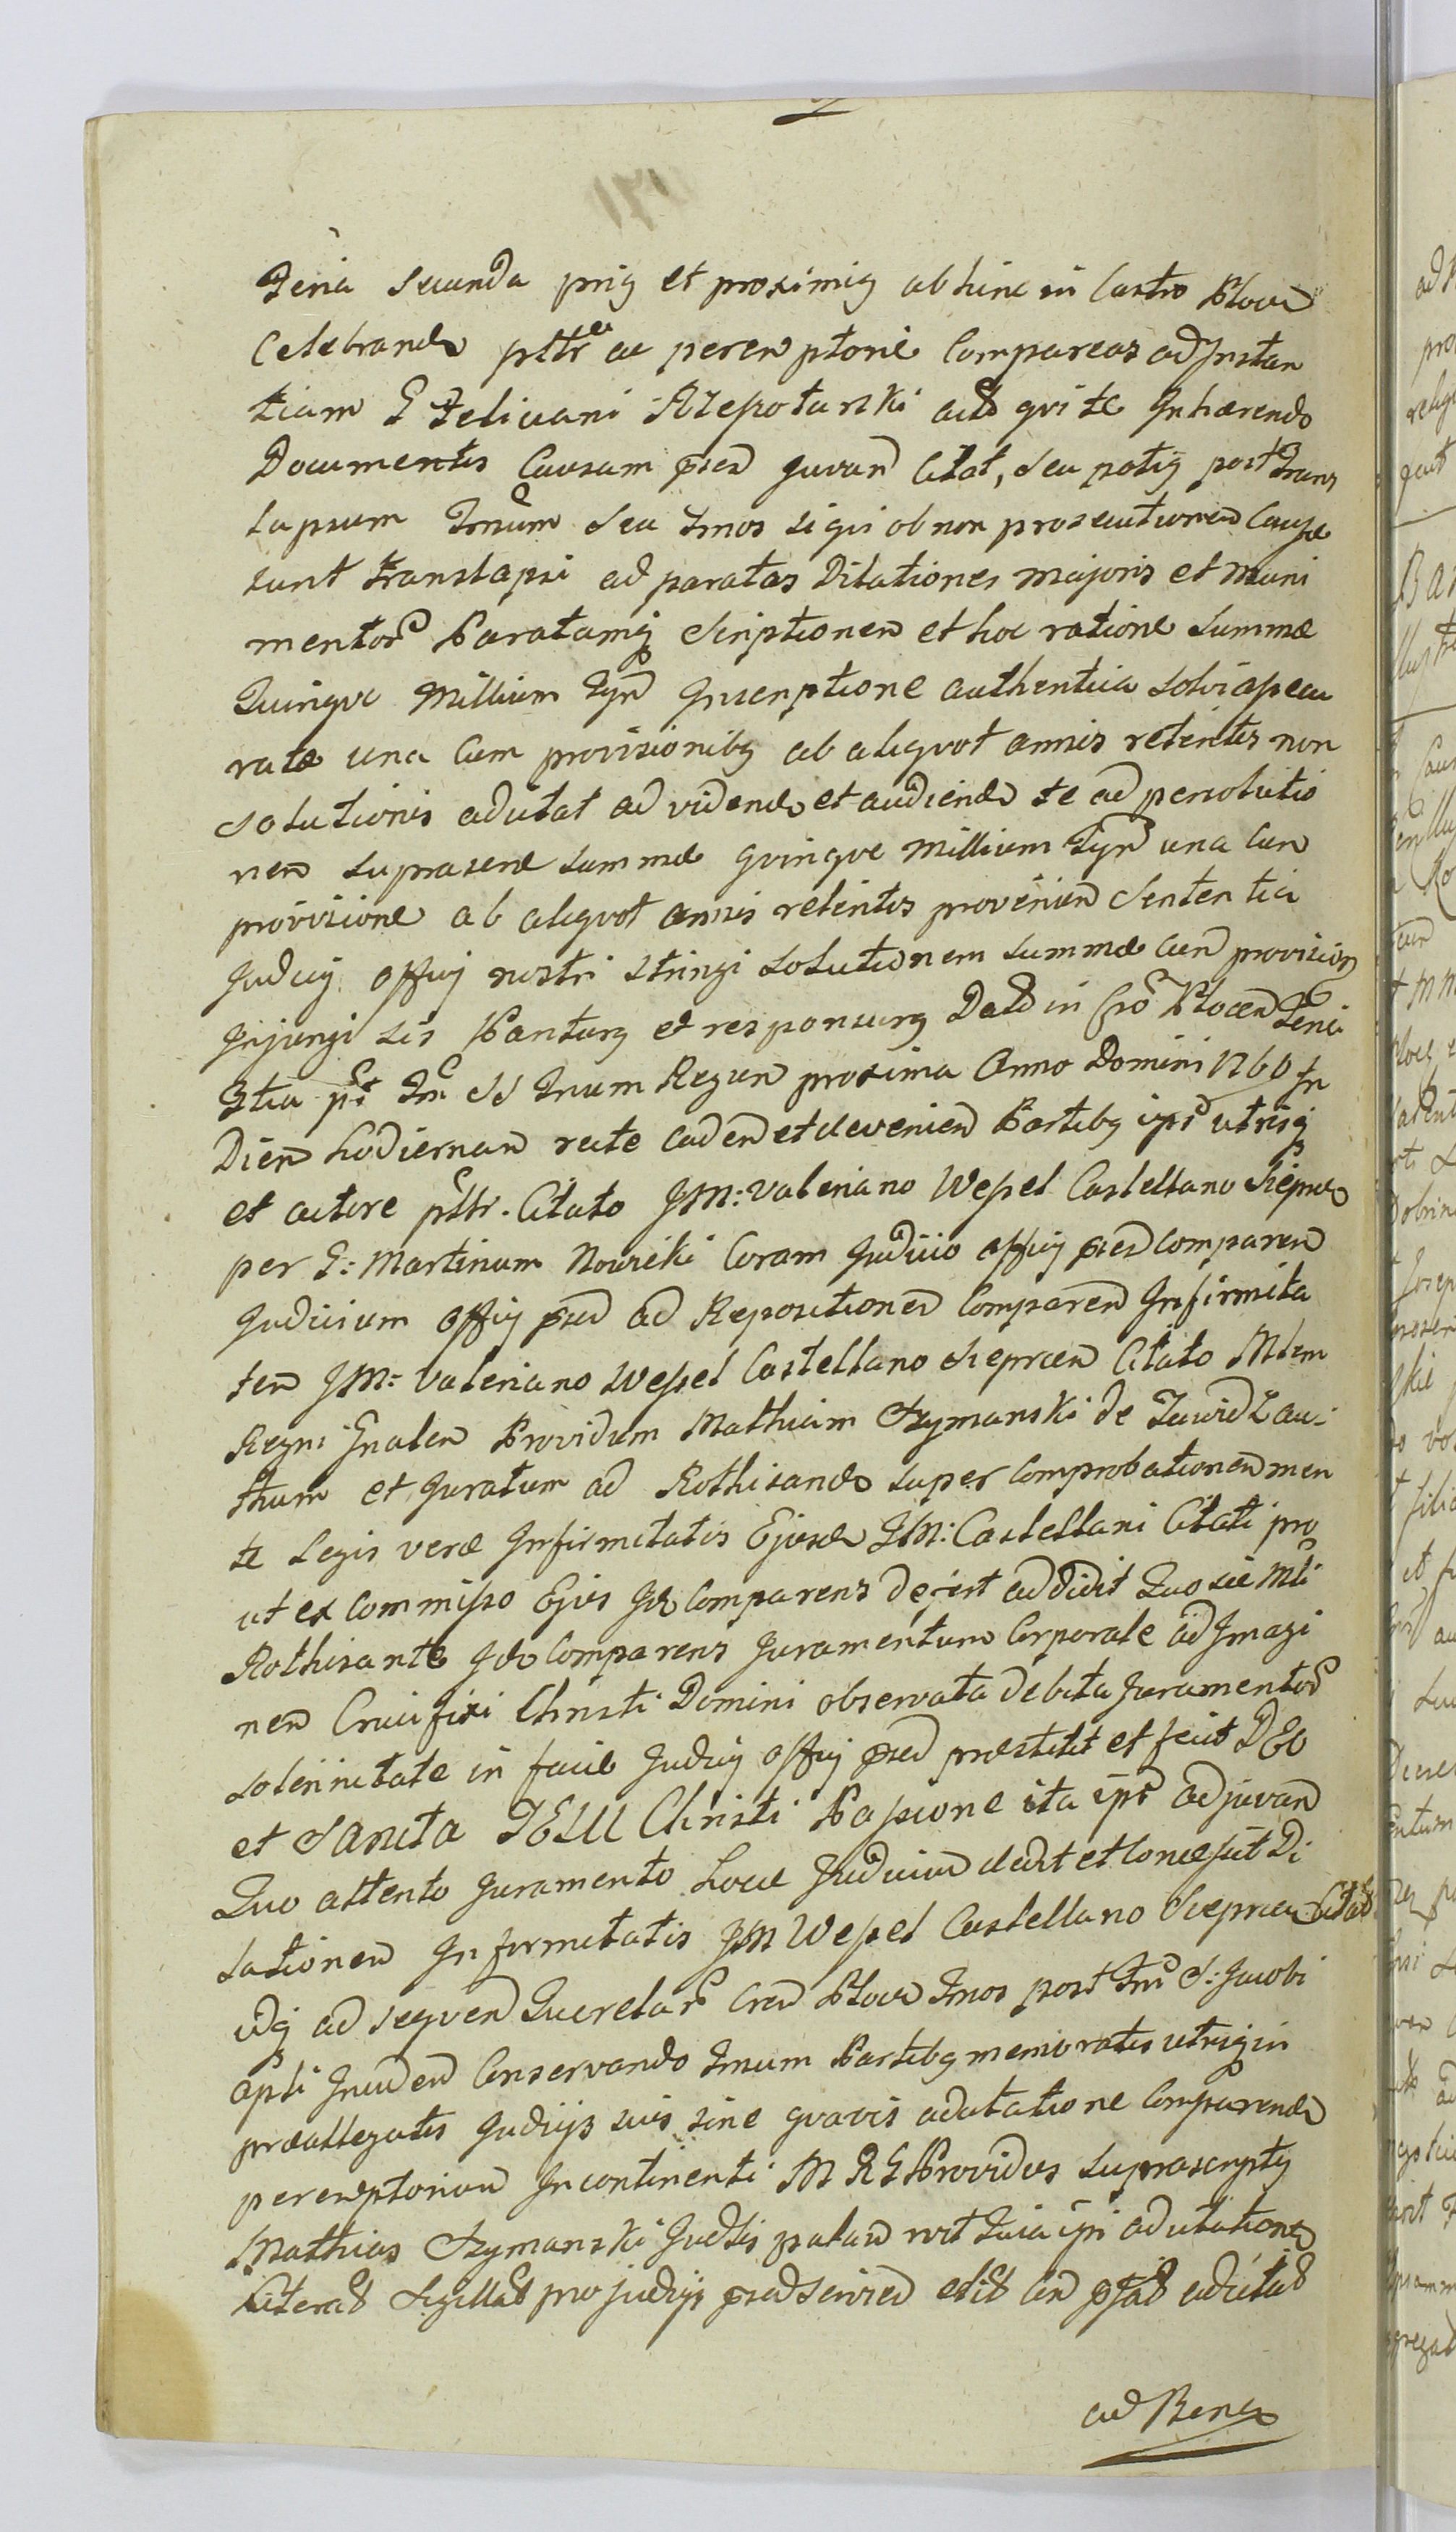 Feria secunda prig et proximig abhinc in Castro Plocen
Celebranda pttr ac peremptorie Compareas ad Instan
tiam G Feliciani Rzeszotarski act qvi te Inhærendo
Documentis Causam præs juvan Citat, seu potig post Trans
lapsum Tmum seu Tmos si qvi ob non prosecutionem Causæ
sunt translapsi ad paratas Dilationes majoris et muni
mentor Paratamq Scriptionem et hoc ratione summæ
Quinqve Millium Tyn Inscriptione authentica solvi apecu
ratæ una Cum provisionibg ab aliqvot annis retentis non
solutionis adcitat ad vidend et audiend te ad persolutio
nem suprascræ summæ qvinqve Millium Tyn una Cum
provisione ab aliqvot annis retentis provenien Sententia
Judicij officij nostri stringi solutionem summæ cum provision
Injungi sis Paritury et responsury Dat in Cro Plocen Feria
3tia pt Fm SS Trium Regum proxima Anno Domini 1760 In
Diem hodiernam recte caden et devenien Partibg ipis utrisq
et actore pttr. Citato JM: Valeriano Wessel Castellano Sieprcen
per G: Martinum Nowicki Coram Judicio officij præs comparen
Judicium officij præs ad Repositionem Comparen Infirmita
tem JM: Valeriano Wessel Castellano Sieprcen Citato Mlem
Regni Gnalem Providum Mathiam Szymanski de
 et Juratum ad Rothisand super comprobationem men
te Legis veræ Infirmitatis Ejusd JM: Castellani Citati pro
ut ex Commisso Ejus Id Comparens addidit Quo sic Mli
Rothisante Id Comparens Juramentum Corporale ad Imagi
nem Crucifixi Christi Domini observata debita Juramentor
solennitate in facie Judicij officij præs præstitit et fecit DEO
et Sancta JESU Christi Passione ita ips adjuvan
Quo attento Juramento Hocce Judicium dedit et Concessit Di
lationem Infirmitatis JM Wessel Castellano Sieprcen Citat
usq ad seqven Querelar Cren Plocen Tmos post Fm S: Jacobi
Apli Inciden Conservando Tmum Partibg memoratis utrisq in
præallegatis Judicijs suis sine qvavis adcitatione Comparendi
peremptorium Incontinenti M R G Providus suprascripty
Mathias Szymanski Judtis palam rvit Quia ipi adcitationem
Literat Sigillat pro judicijs præs edit cum adcitat
ad Bena